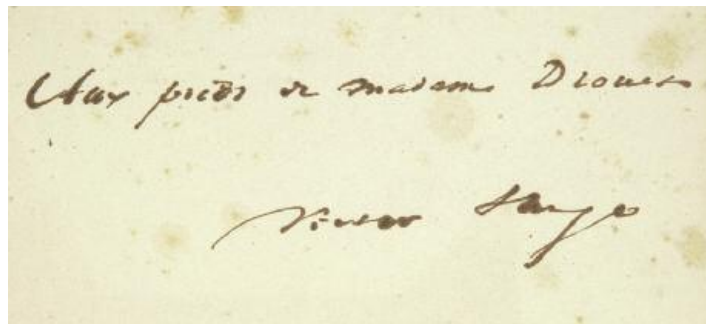 Aux pieds de madame Drouet
Victor Hugo